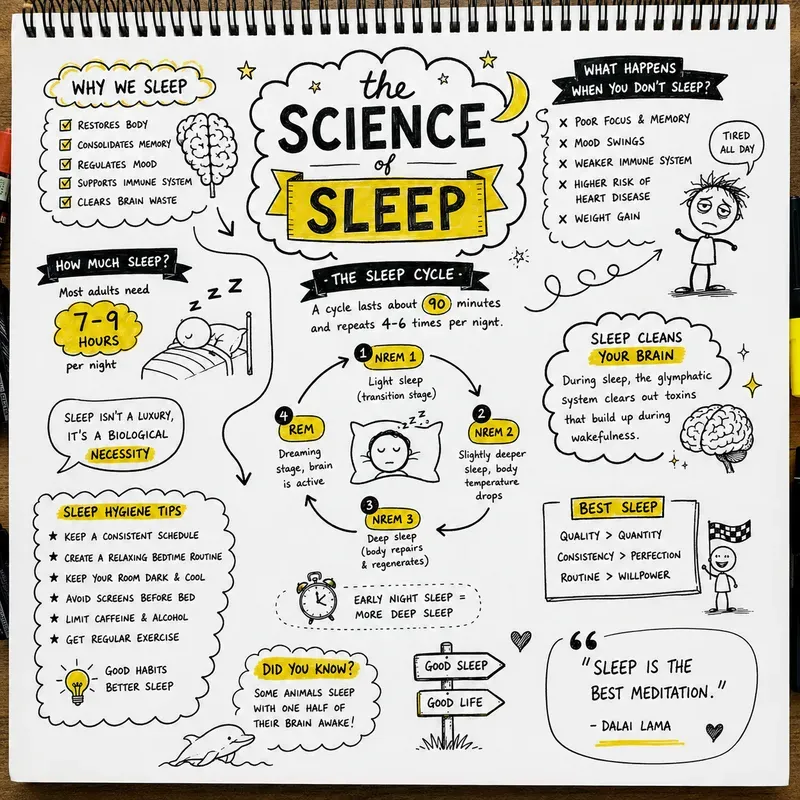 the
SCIENCE
of
SLEEP
WHY WE SLEEP
RESTORES BODY
CONSOLIDATES MEMORY
REGULATES MOOD
SUPPORTS IMMUNE SYSTEM
CLEARS BRAIN WASTE
WHAT HAPPENS
WHEN YOU DON'T SLEEP?
POOR FOCUS & MEMORY
MOOD SWINGS
WEAKER IMMUNE SYSTEM
HIGHER RISK OF
HEART DISEASE
WEIGHT GAIN
TIRED
ALL DAY
HOW MUCH SLEEP?
Most adults need
7-9
HOURS
per night
z z z
SLEEP ISN'T A LUXURY,
IT'S A BIOLOGICAL
NECESSITY
· THE SLEEP CYCLE ·
A cycle lasts about 90 minutes
and repeats 4-6 times per night.
1 NREM 1
Light sleep
(transition stage)
2
NREM 2
Slightly deeper
sleep, body
temperature
drops
3
NREM 3
Deep sleep
(body repairs
& regenerates)
4
REM
Dreaming
stage, brain
is active
z z z z
EARLY NIGHT SLEEP =
MORE DEEP SLEEP
SLEEP CLEANS
YOUR BRAIN
During sleep, the glymphatic
system clears out toxins
that build up during
wakefulness.
BEST SLEEP
QUALITY > QUANTITY
CONSISTENCY > PERFECTION
ROUTINE > WILLPOWER
SLEEP HYGIENE TIPS
★ KEEP A CONSISTENT SCHEDULE
★ CREATE A RELAXING BEDTIME ROUTINE
★ KEEP YOUR ROOM DARK & COOL
★ AVOID SCREENS BEFORE BED
★ LIMIT CAFFEINE & ALCOHOL
★ GET REGULAR EXERCISE
GOOD HABITS
BETTER SLEEP
DID YOU KNOW?
SOME ANIMALS SLEEP
WITH ONE HALF OF
THEIR BRAIN AWAKE!
GOOD SLEEP
GOOD LIFE
"SLEEP IS THE
BEST MEDITATION."
- DALAI LAMA